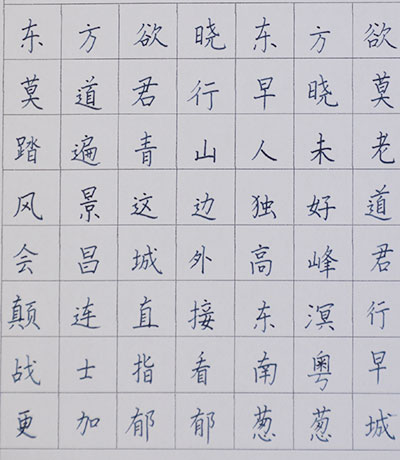 东方欲晓东方欲
莫道君行早晓莫
踏遍青山人未老
风景这边独好道
会昌城外高峰君
颠连直接东溟行
战士指看南粤早
更加郁郁葱葱城